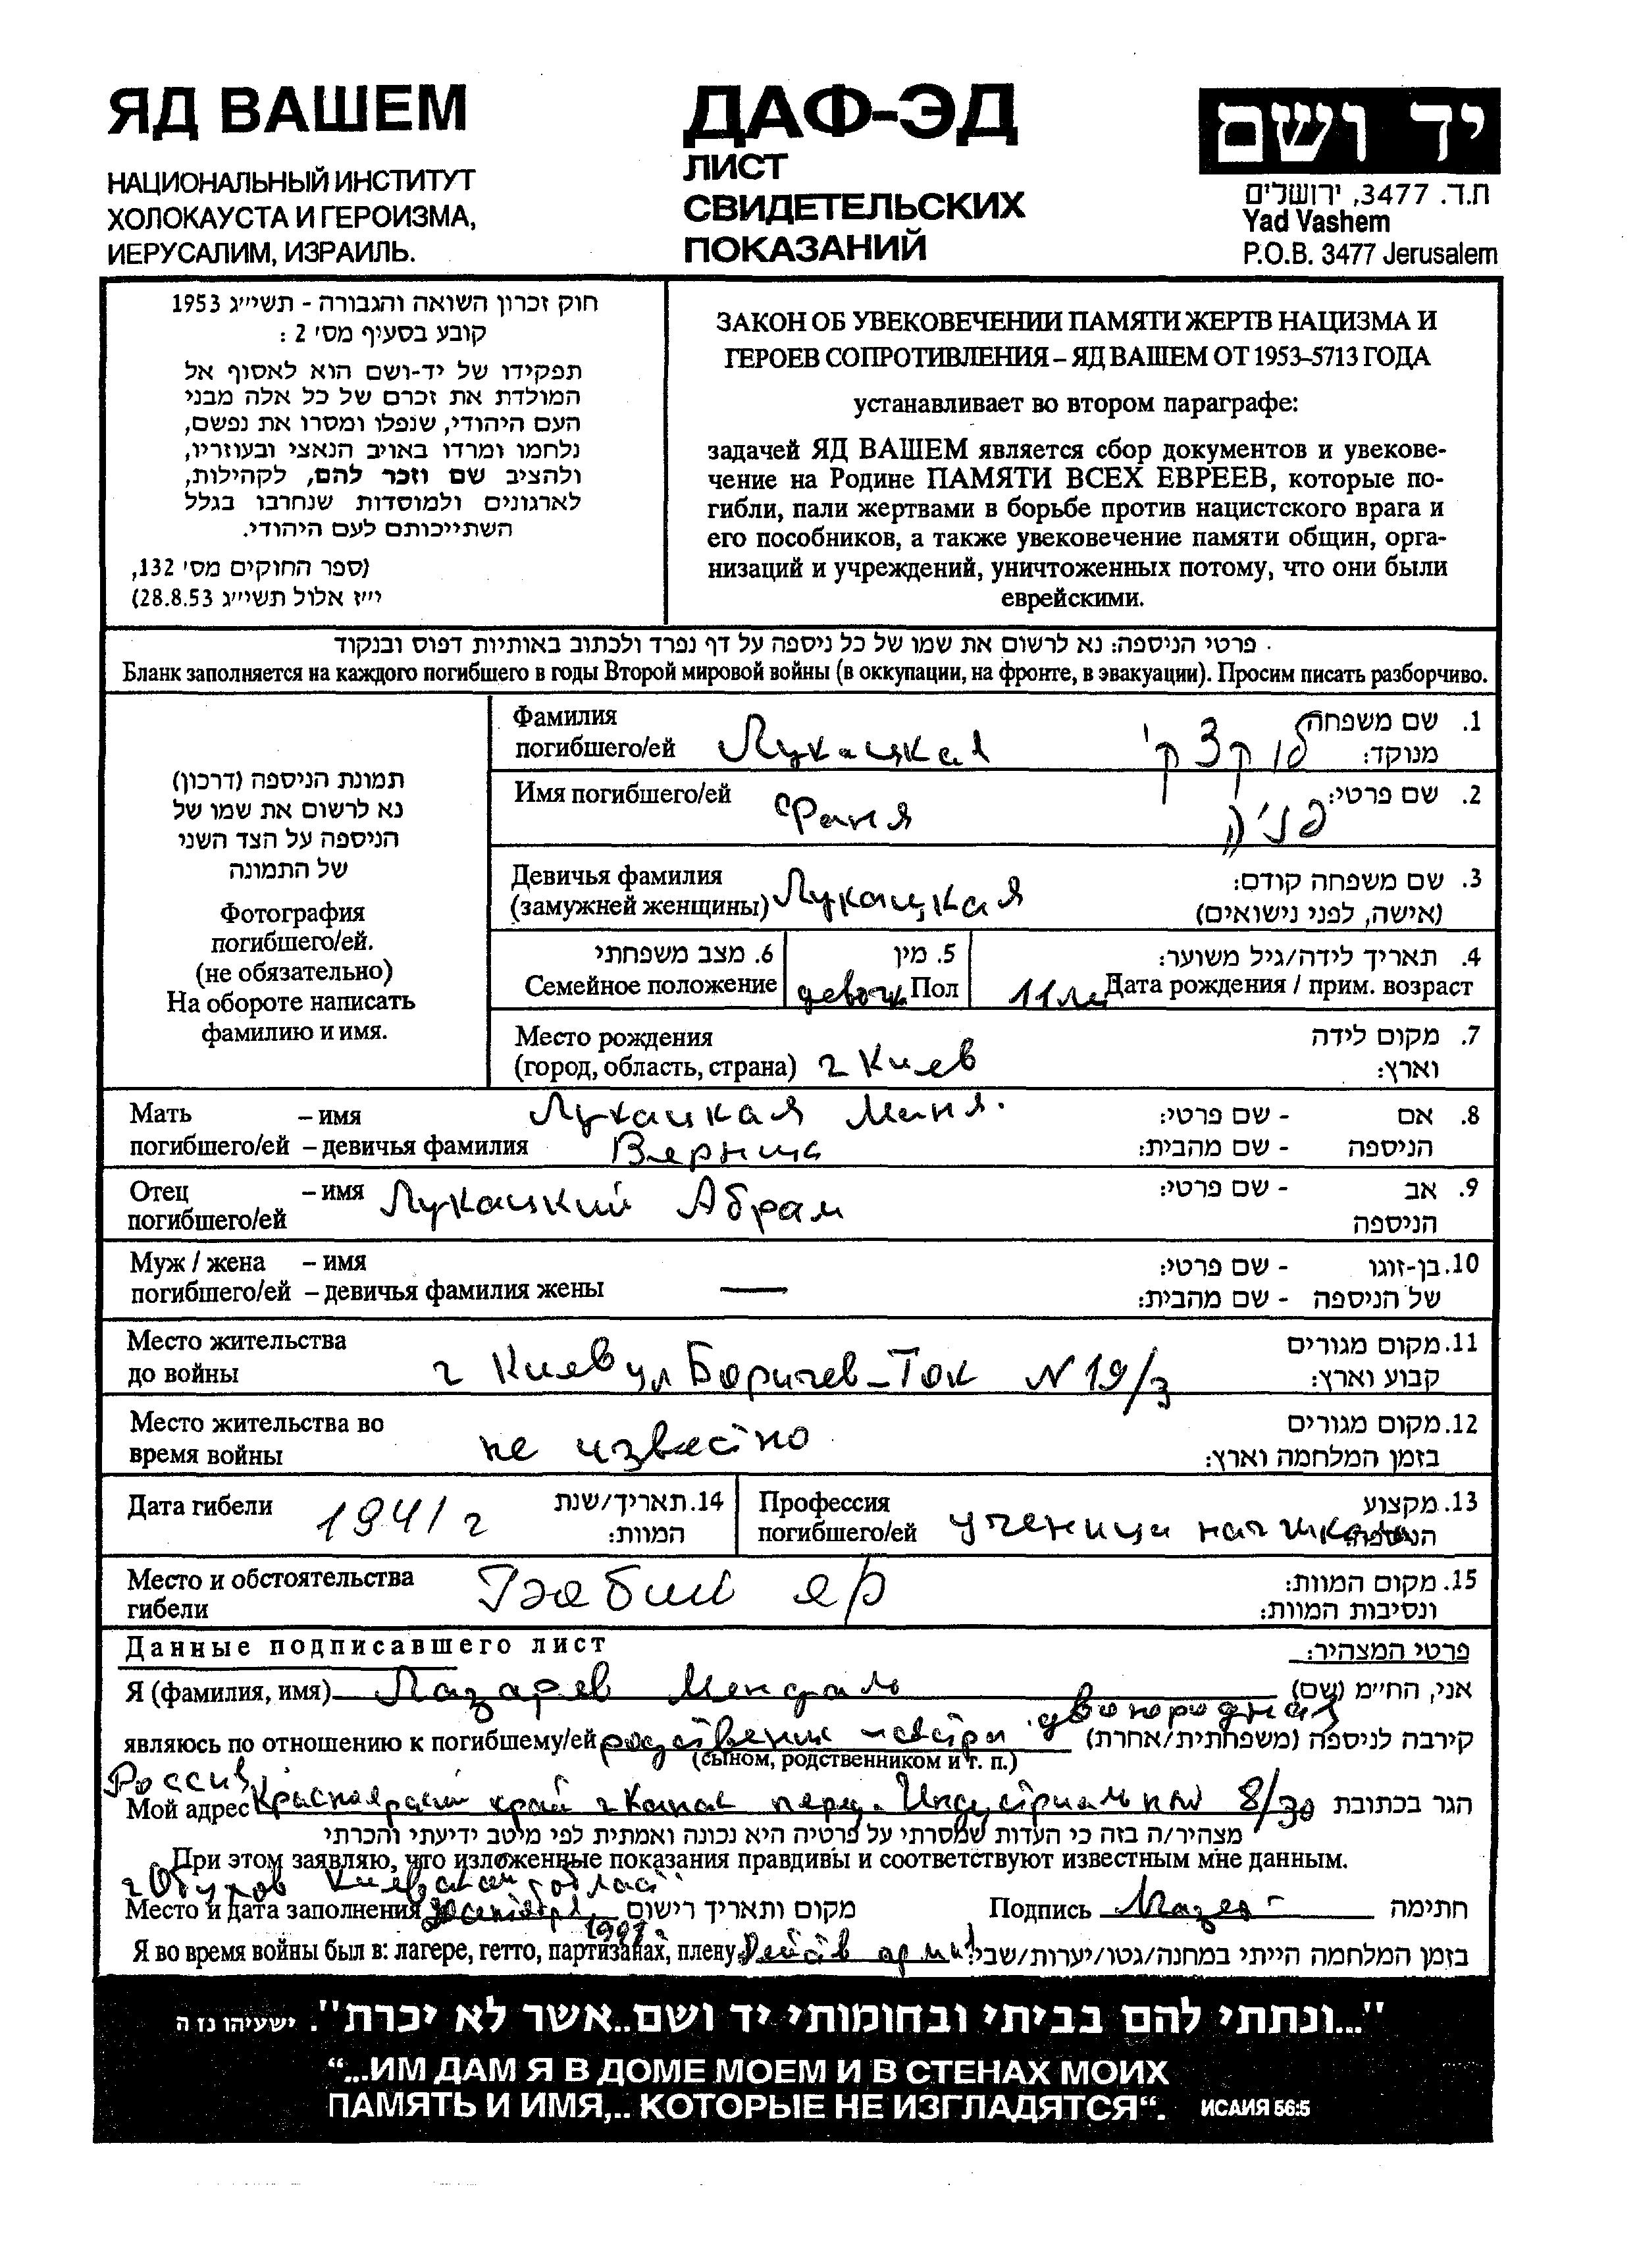 ЯД ВАШЕМ
НАЦИОНАЛЬНЫЙ ИНСТИТУТ
ХОЛОКАУСТА И ГЕРОИЗМА,
ИЕРУСАЛИМ, ИЗРАИЛЬ.
ДАФ-ЭД
ЛИСТ
СВИДЕТЕЛЬСКИХ
ПОКАЗАНИЙ
יד ושם
ת.ד. 3477, ירושלים
Yad Vashem
P.O.B. 3477 Jerusalem
חוק זכרון השואה והגבורה - תשי״ג 1953
קובע בסעיף מס׳ 2 :
תפקידו של יד-ושם הוא לאסוף אל
המולדת את זכרם של כל אלה מבני
העם היהודי, שנפלו ומסרו את נפשם,
נלחמו ומרדו באויב הנאצי ובעוזריו,
ולהציב שם וזכר להם, לקהילות,
לארגונים ולמוסדות שנחרבו בגלל
השתייכותם לעם היהודי.
(ספר החוקים מס׳ 132,
י״ז אלול תשי״ג 28.8.53)
ЗАКОН ОБ УВЕКОВЕЧЕНИИ ПАМЯТИ ЖЕРТВ НАЦИЗМА И
ГЕРОЕВ СОПРОТИВЛЕНИЯ – ЯД ВАШЕМ ОТ 1953–5713 ГОДА
устанавливает во втором параграфе:
задачей ЯД ВАШЕМ является сбор документов и увекове-
чение на Родине ПАМЯТИ ВСЕХ ЕВРЕЕВ, которые по-
гибли, пали жертвами в борьбе против нацистского врага и
его пособников, а также увековечение памяти общин, орга-
низаций и учреждений, уничтоженных потому, что они были
еврейскими.
פרטי הניספה: נא לרשום את שמו של כל ניספה על דף נפרד ולכתוב באותיות דפוס ובנקוד
Бланк заполняется на каждого погибшего в годы Второй мировой войны (в оккупации, на фронте, в эвакуации). Просим писать разборчиво.
תמונת הניספה (דרכון)
נא לרשום את שמו של
הניספה על הצד השני
של התמונה
Фотография
погибшего/ей.
(не обязательно)
На обороте написать
фамилию и имя.
Фамилия 1. שם משפחה
погибшего/ей Лукацкая לוקצקי מנוקד:
Имя погибшего/ей Фаня פניה 2. שם פרטי:
Девичья фамилия 3. שם משפחה קודם:
(замужней женщины) Лукацкая (אישה, לפני נישואים)
6. מצב משפחתי 5. מין 4. תאריך לידה/גיל משוער:
Семейное положение девочк Пол 11 ле Дата рождения / прим. возраст
Место рождения 7. מקום לידה
(город, область, страна) г Киев וארץ:
Мать – имя Лукацкая Маня. 8. אם - שם פרטי:
погибшего/ей – девичья фамилия הניספה - שם מהבית:
Отец – имя Лукацкий Абрам 9. אב - שם פרטי:
погибшего/ей הניספה
Муж / жена – имя 10. בן-זוגו - שם פרטי:
погибшего/ей – девичья фамилия жены — של הניספה - שם מהבית:
Место жительства 11. מקום מגורים
до войны г Киев ул Боричев-Ток N 19/3 קבוע וארץ:
Место жительства во 12. מקום מגורים
время войны не известно בזמן המלחמה וארץ:
Дата гибели 1941 г 14. תאריך/שנת
המוות:
Профессия 13. מקצוע
погибшего/ей ученица нач школы הניספה:
Место и обстоятельства 15. מקום המוות:
гибели Бабий яр ונסיבות המוות:
Данные подписавшего лист פרטי המצהיר:
Я (фамилия, имя) Лазарев אני, החיימ (שם)
двоюродная
являюсь по отношению к погибшему/ей קירבה לניספה (משפחתית/אחרת)
(сыном, родственником и т. п.)
Россия
Мой адрес край г Канск пер. 8/30 הגר בכתובת
מצהיר/ה בזה כי העדות שמסרתי על פרטיה היא נכונה ואמתית לפי מיטב ידיעתי והכרתי
При этом заявляю, что изложенные показания правдивы и соответствуют известным мне данным.
г Обухов
Место и дата заполнения מקום ותאריך רישום Подпись חתימה
Я во время войны был в: лагере, гетто, партизанах, плену בזמן המלחמה הייתי במחנה/גטו/יערות/שבי:
"...ונתתי להם בביתי ובחומותי יד ושם..אשר לא יכרת". ישעיהו נז ה
“...ИМ ДАМ Я В ДОМЕ МОЕМ И В СТЕНАХ МОИХ
ПАМЯТЬ И ИМЯ,.. КОТОРЫЕ НЕ ИЗГЛАДЯТСЯ“. ИСАИЯ 56:5